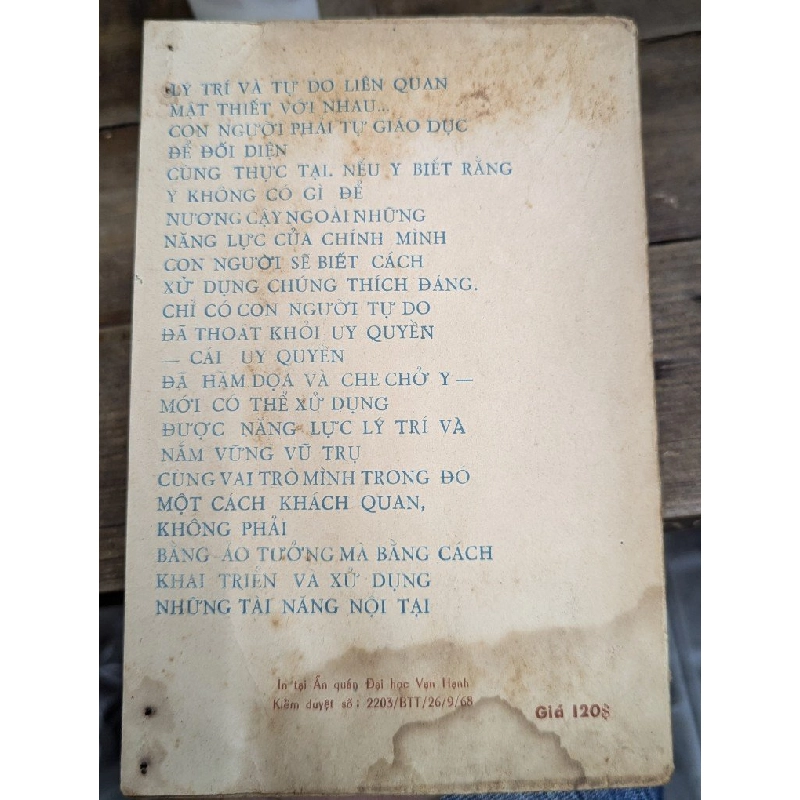 LÝ TRÍ VÀ TỰ DO LIÊN QUAN
MẬT THIẾT VỚI NHAU...
CON NGƯỜI PHẢI TỰ GIÁO DỤC
ĐỂ ĐỐI DIỆN
CÙNG THỰC TẠI. NẾU Y BIẾT RẰNG
Y KHÔNG CÓ GÌ ĐỂ
NƯƠNG CẬY NGOÀI NHỮNG
NĂNG LỰC CỦA CHÍNH MÌNH
CON NGƯỜI SẼ BIẾT CÁCH
XỬ DỤNG CHÚNG THÍCH ĐÁNG.
CHỈ CÓ CON NGƯỜI TỰ DO
ĐÃ THOÁT KHỎI UY QUYỀN
— CÁI UY QUYỀN
ĐÃ HĂM DỌA VÀ CHE CHỞ Y —
MỚI CÓ THỂ XỬ DỤNG
ĐƯỢC NĂNG LỰC LÝ TRÍ VÀ
NẮM VỮNG VŨ TRỤ
CÙNG VAI TRÒ MÌNH TRONG ĐÓ
MỘT CÁCH KHÁCH QUAN,
KHÔNG PHẢI
BẰNG ẢO TƯỞNG MÀ BẰNG CÁCH
KHAI TRIỂN VÀ XỬ DỤNG
NHỮNG TÀI NĂNG NỘI TẠI
In tại Ấn quán Đại học Vạn Hạnh
Kiểm duyệt số : 2203/BTT/26/9/68
Giá 120$